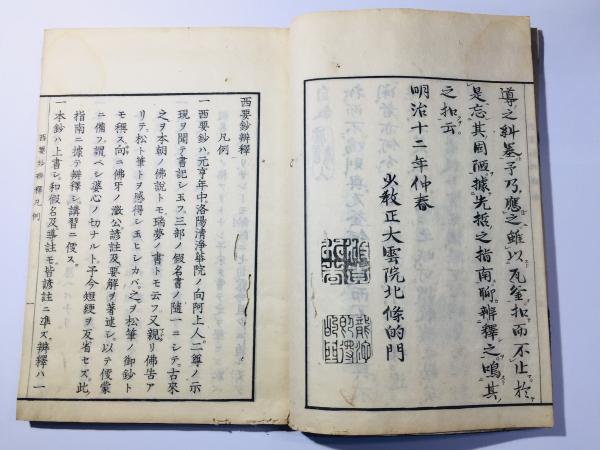 導之糾墓予乃應之雖以瓦釜扣而不止於
是忘其固陋據先哲之指南聊辨釋之鳴其
之扣云
明治十二年仲春
少教正大雲院北條的門
西要鈔辨釋
凡例
一西要鈔ハ元亨年中洛陽清淨華院ノ向阿上人二尊ノ示
現ヲ聞テ書記シ玉フ三部ノ假名書ノ隨一ニシテ古來
之ヲ本朝ノ佛說トモ瑞夢ノ書トモ云フ又親リ佛告ア
リテ松ト筆トヲ感得シ玉ヒシカバ之ヲ松筆ノ御鈔ト
モ稱ス向ニ佛牙ノ澂公諺註及要解ヲ著述シ以テ後蒙
ニ備フ謂ベシ婆心ノ切ナルト予今短綆ヲ反省セズ此
指南ニ據テ辨釋シ講習ニ便ス
一本鈔ハ上書シ和假名及導註モ皆諺註ニ準ズ辨釋ハ一
西要鈔辨釋凡例